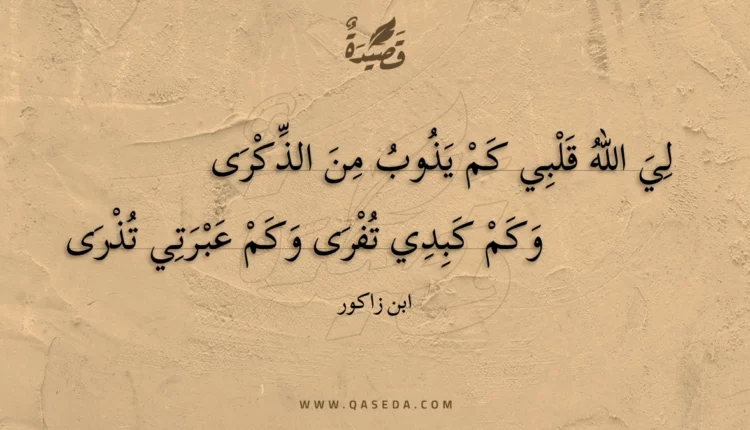 قَصِيدَةٌ
لِيَ اللهُ قَلْبِي كَمْ يَذُوبُ مِنَ الذِّكْرَى
وَكَمْ كَبِدِي تُفْرَى وَكَمْ عَبْرَتِي تُذْرَى
ابن زاكور
WWW.QASEDA.COM